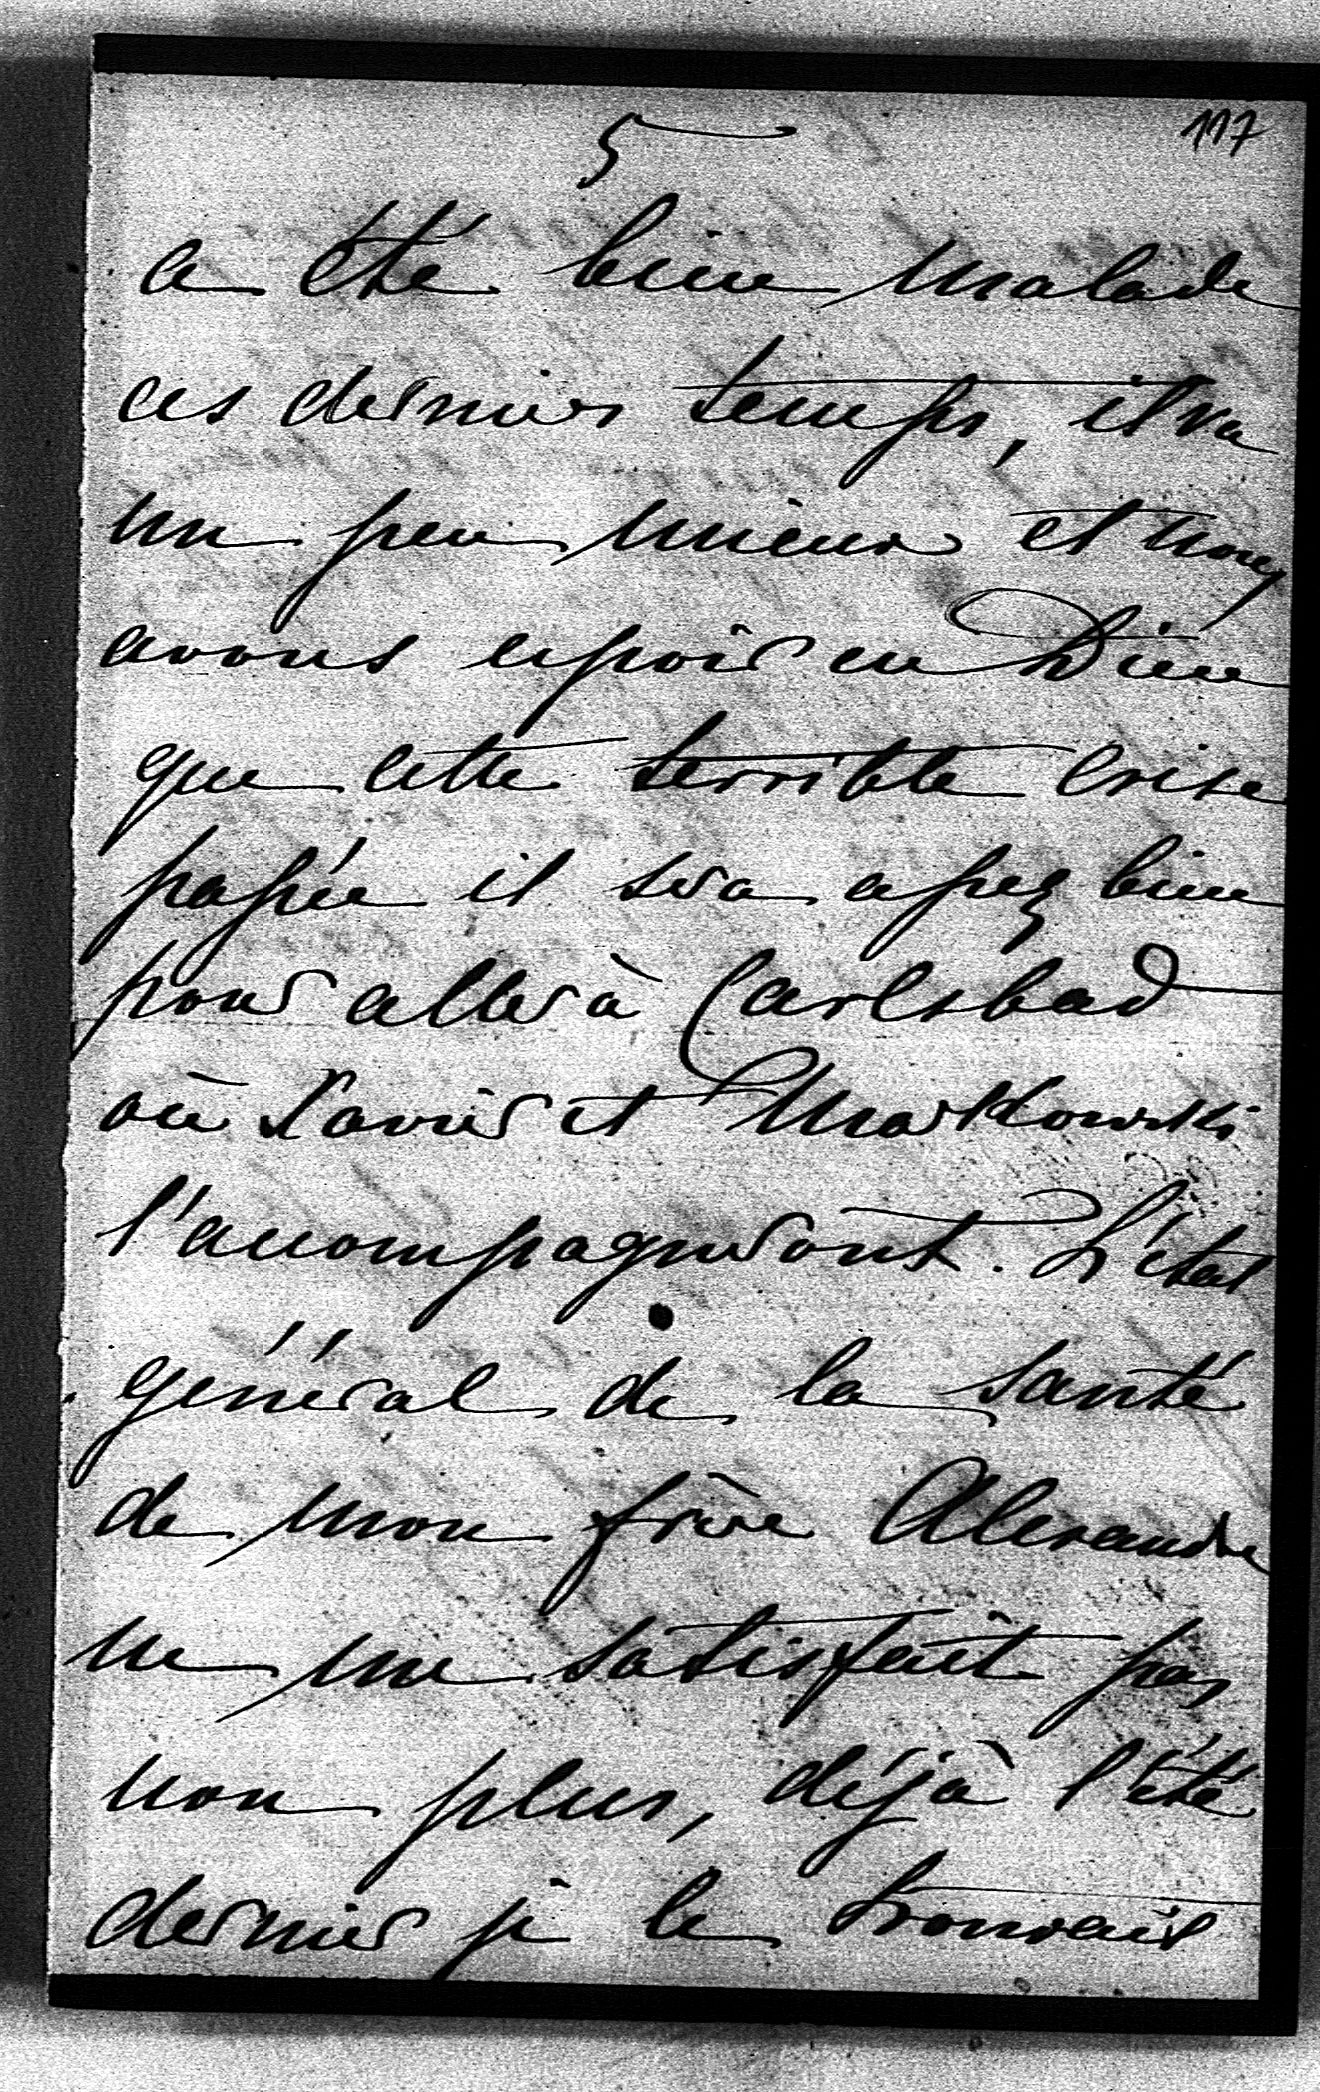 5
117
a été bien malade
ces derniers temps, il va
un peu mieux et nous
avons espoir en Dieu
que cette terrible crise
passée il sera assez bien
pour aller à Carlsbad
où Xavier et Markowski
l'accompagneront. L'état
général de la santé
de mon frère Alexandre
ne me satisfait pas
non plus, déjà l'été
dernier je le trouvais